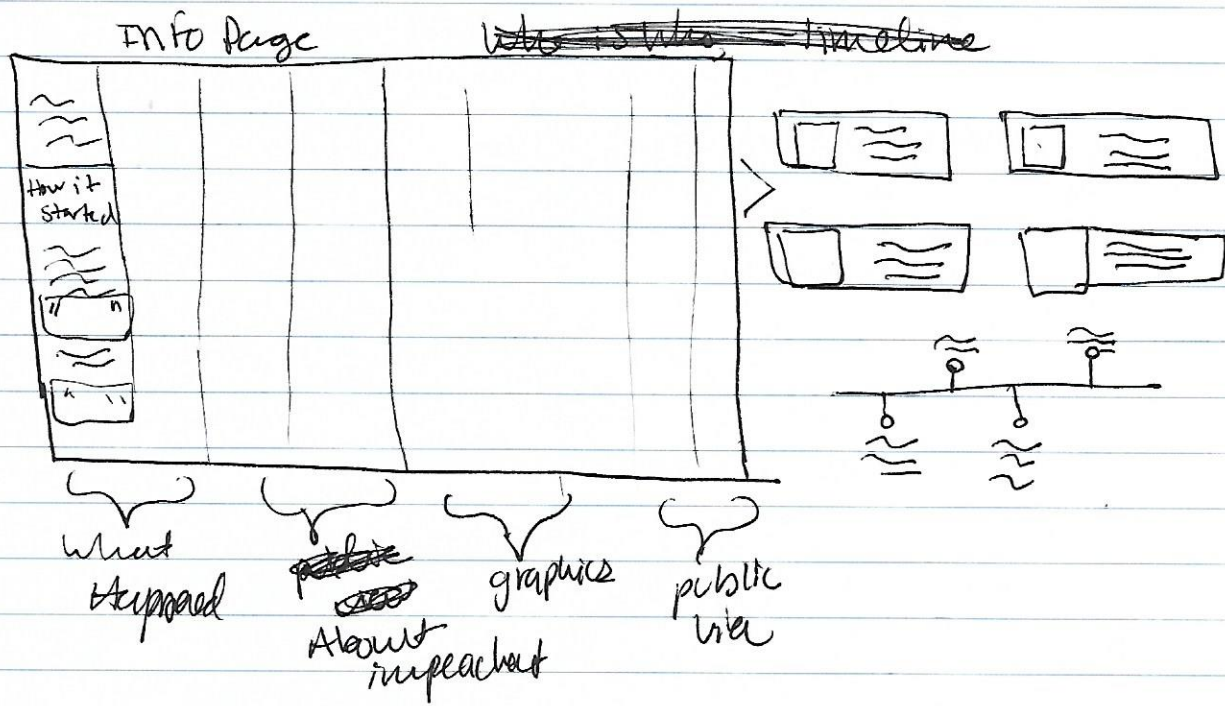 Info Page
who is who, timeline
How it
started
" "
" "
what
Happened
public
view
About
impeachmt
graphics
public
view